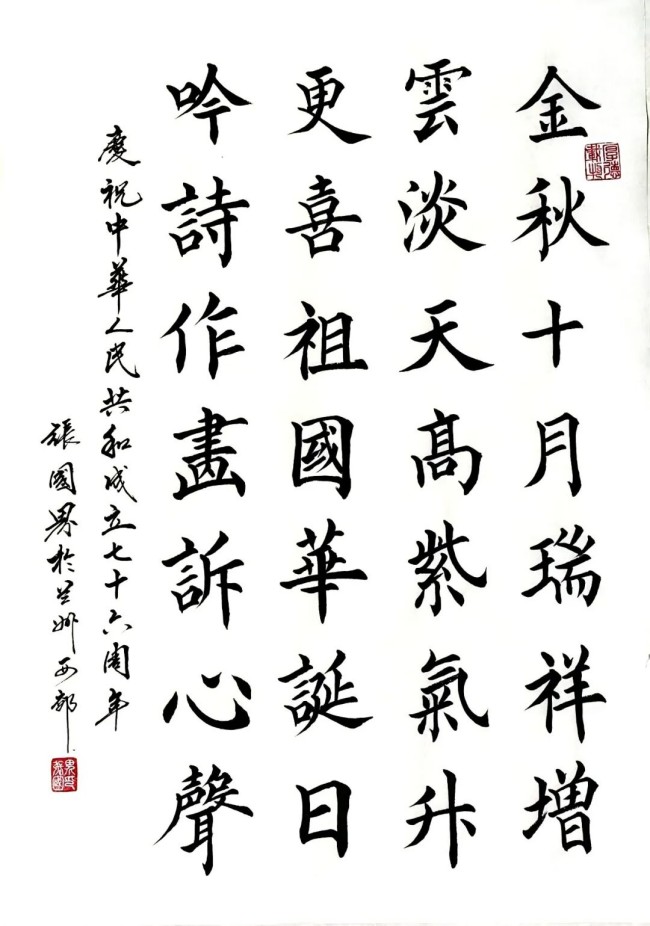 金秋十月瑞祥增
雲淡天髙紫氣升
更喜祖國華誕日
吟詩作畫訴心聲
慶祝中華人民共和成立七十六周年
張國界於兰州西部
厚德載物